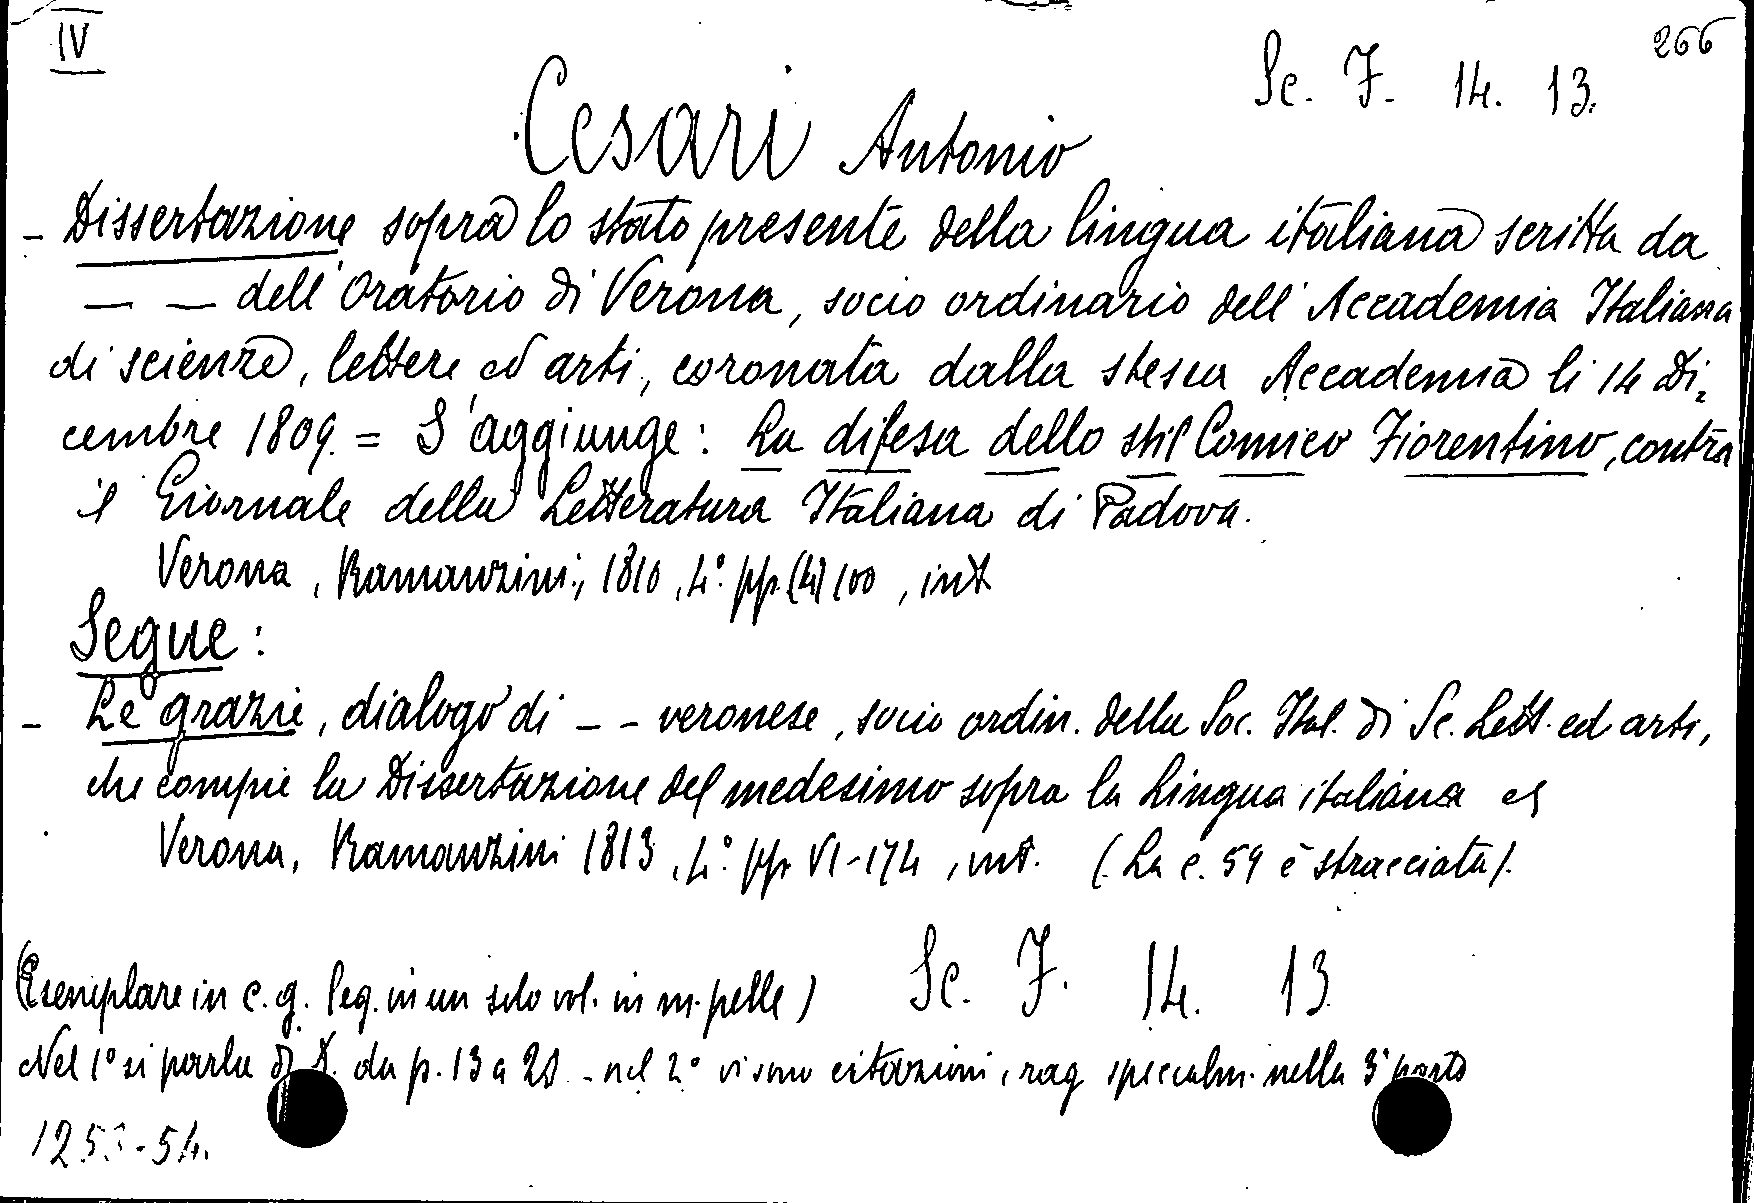 IV
266
Sc. F. 14. 13.
Cesari Antonio
- Dissertazione sopra lo stato presente della lingua italiana scritta da
— — dell'Oratorio di Verona, socio ordinario dell'Accademia Italiana
di scienze, lettere ed arti, coronata dalla stessa Accademia li 14 Di-
cembre 1809. = S'aggiunge: La difesa dello stil Comico Fiorentino, contra
il Giornale della Letteratura Italiana di Padova.
Verona, Ramanzini, 1810, 4° pp. (4) 100, int.
Segue:
- Le grazie, dialogo di - - veronese, socio ordin. della Soc. Ital. di Sc. Lett. ed arti,
che compie la Dissertazione del medesimo sopra la lingua italiana
Verona, Ramanzini 1813, 4° pp. VI-174, int. (La c. 59 è stracciata).
(Esemplare in c. g. leg. in un solo vol. in m. pelle) Sc. F. 14. 13
Nel 1° si parla di D. da p. 13 a - nel 2° vi sono citazioni, rag specialm. nella 3ª parte
1253-54.